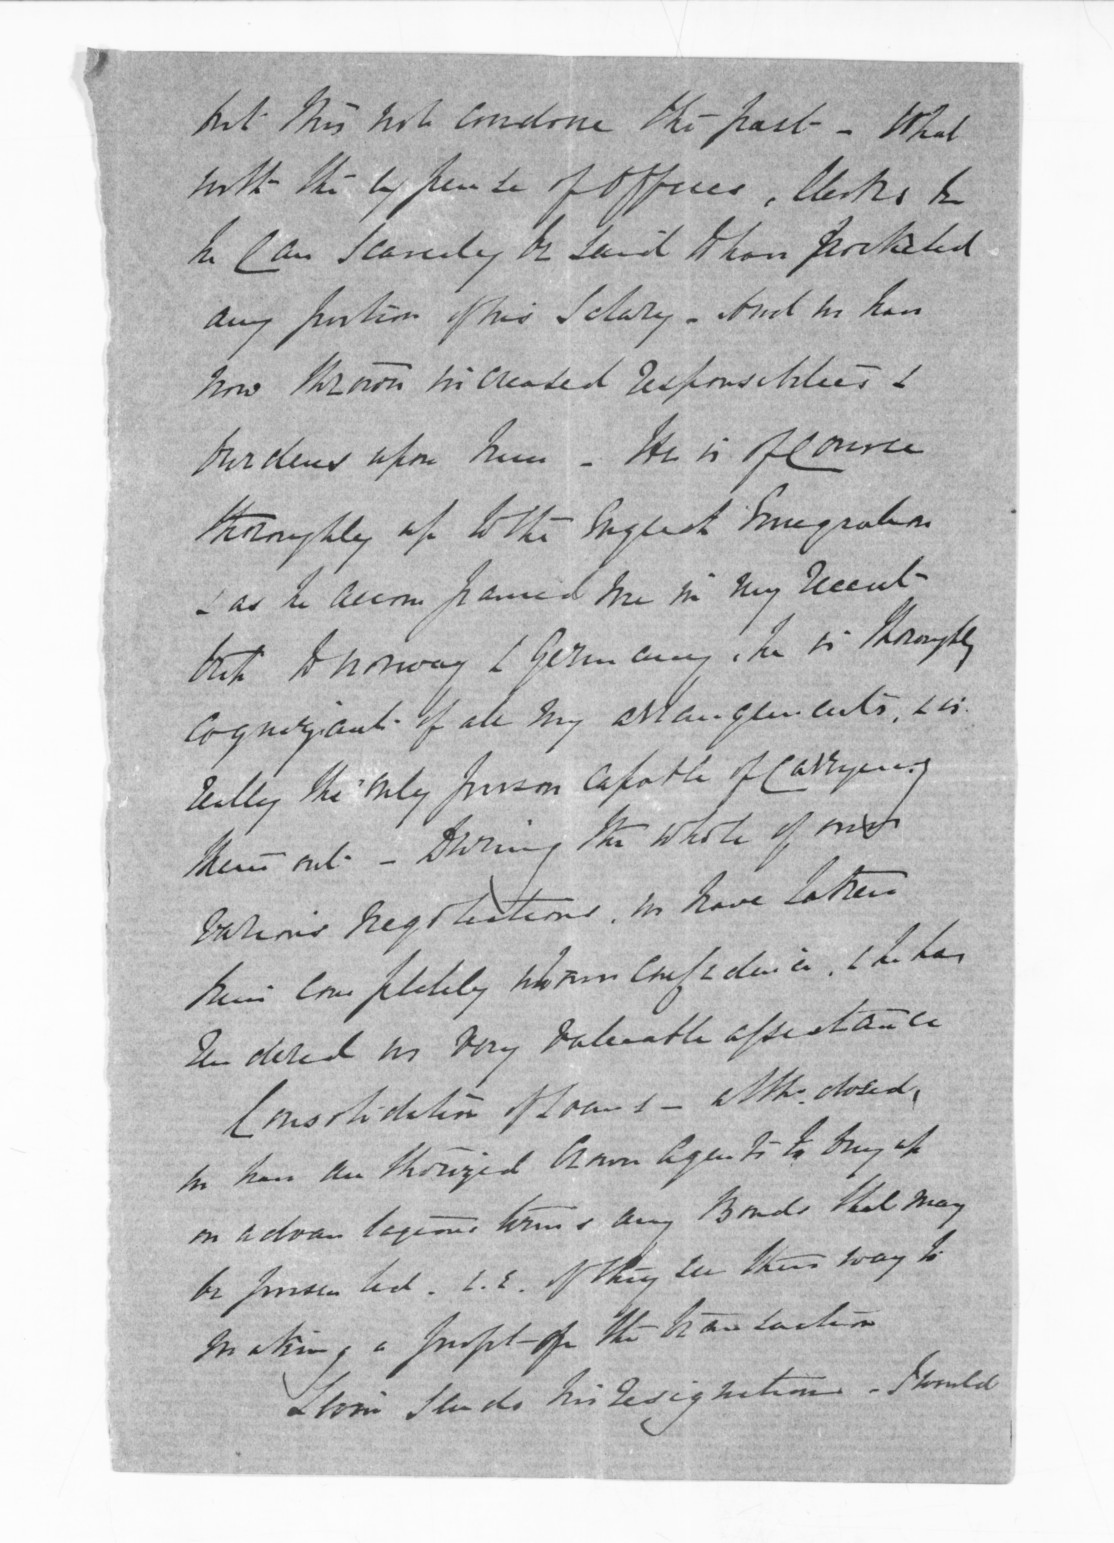 but this not condone the past - What
with the expense of Offices, Clerks &c
he Can Scarcely be said to have pocketed
any portion of his Salary - And we have
now thrown increased responsibilities &
burdens upon him - He is of Course
thoroughly up to the English Emigration
& as he accompanied me in my recent
trip to Norway & Germany, he is thoroughly
cognizant of all my arrangements, & is
really the only person capable of Carrying
them out - During the whole of our
various negotiations, we have taken
him completely into our confidence, & he has
rendered us very valuable assistance
Consolidation of Loans - altho. closed,
we have authorized Crown Agents to buy up
on advantageous terms any Bonds that may
be presented. i.e. if they see their way to
making a profit on the transaction
sends his resignation - I would